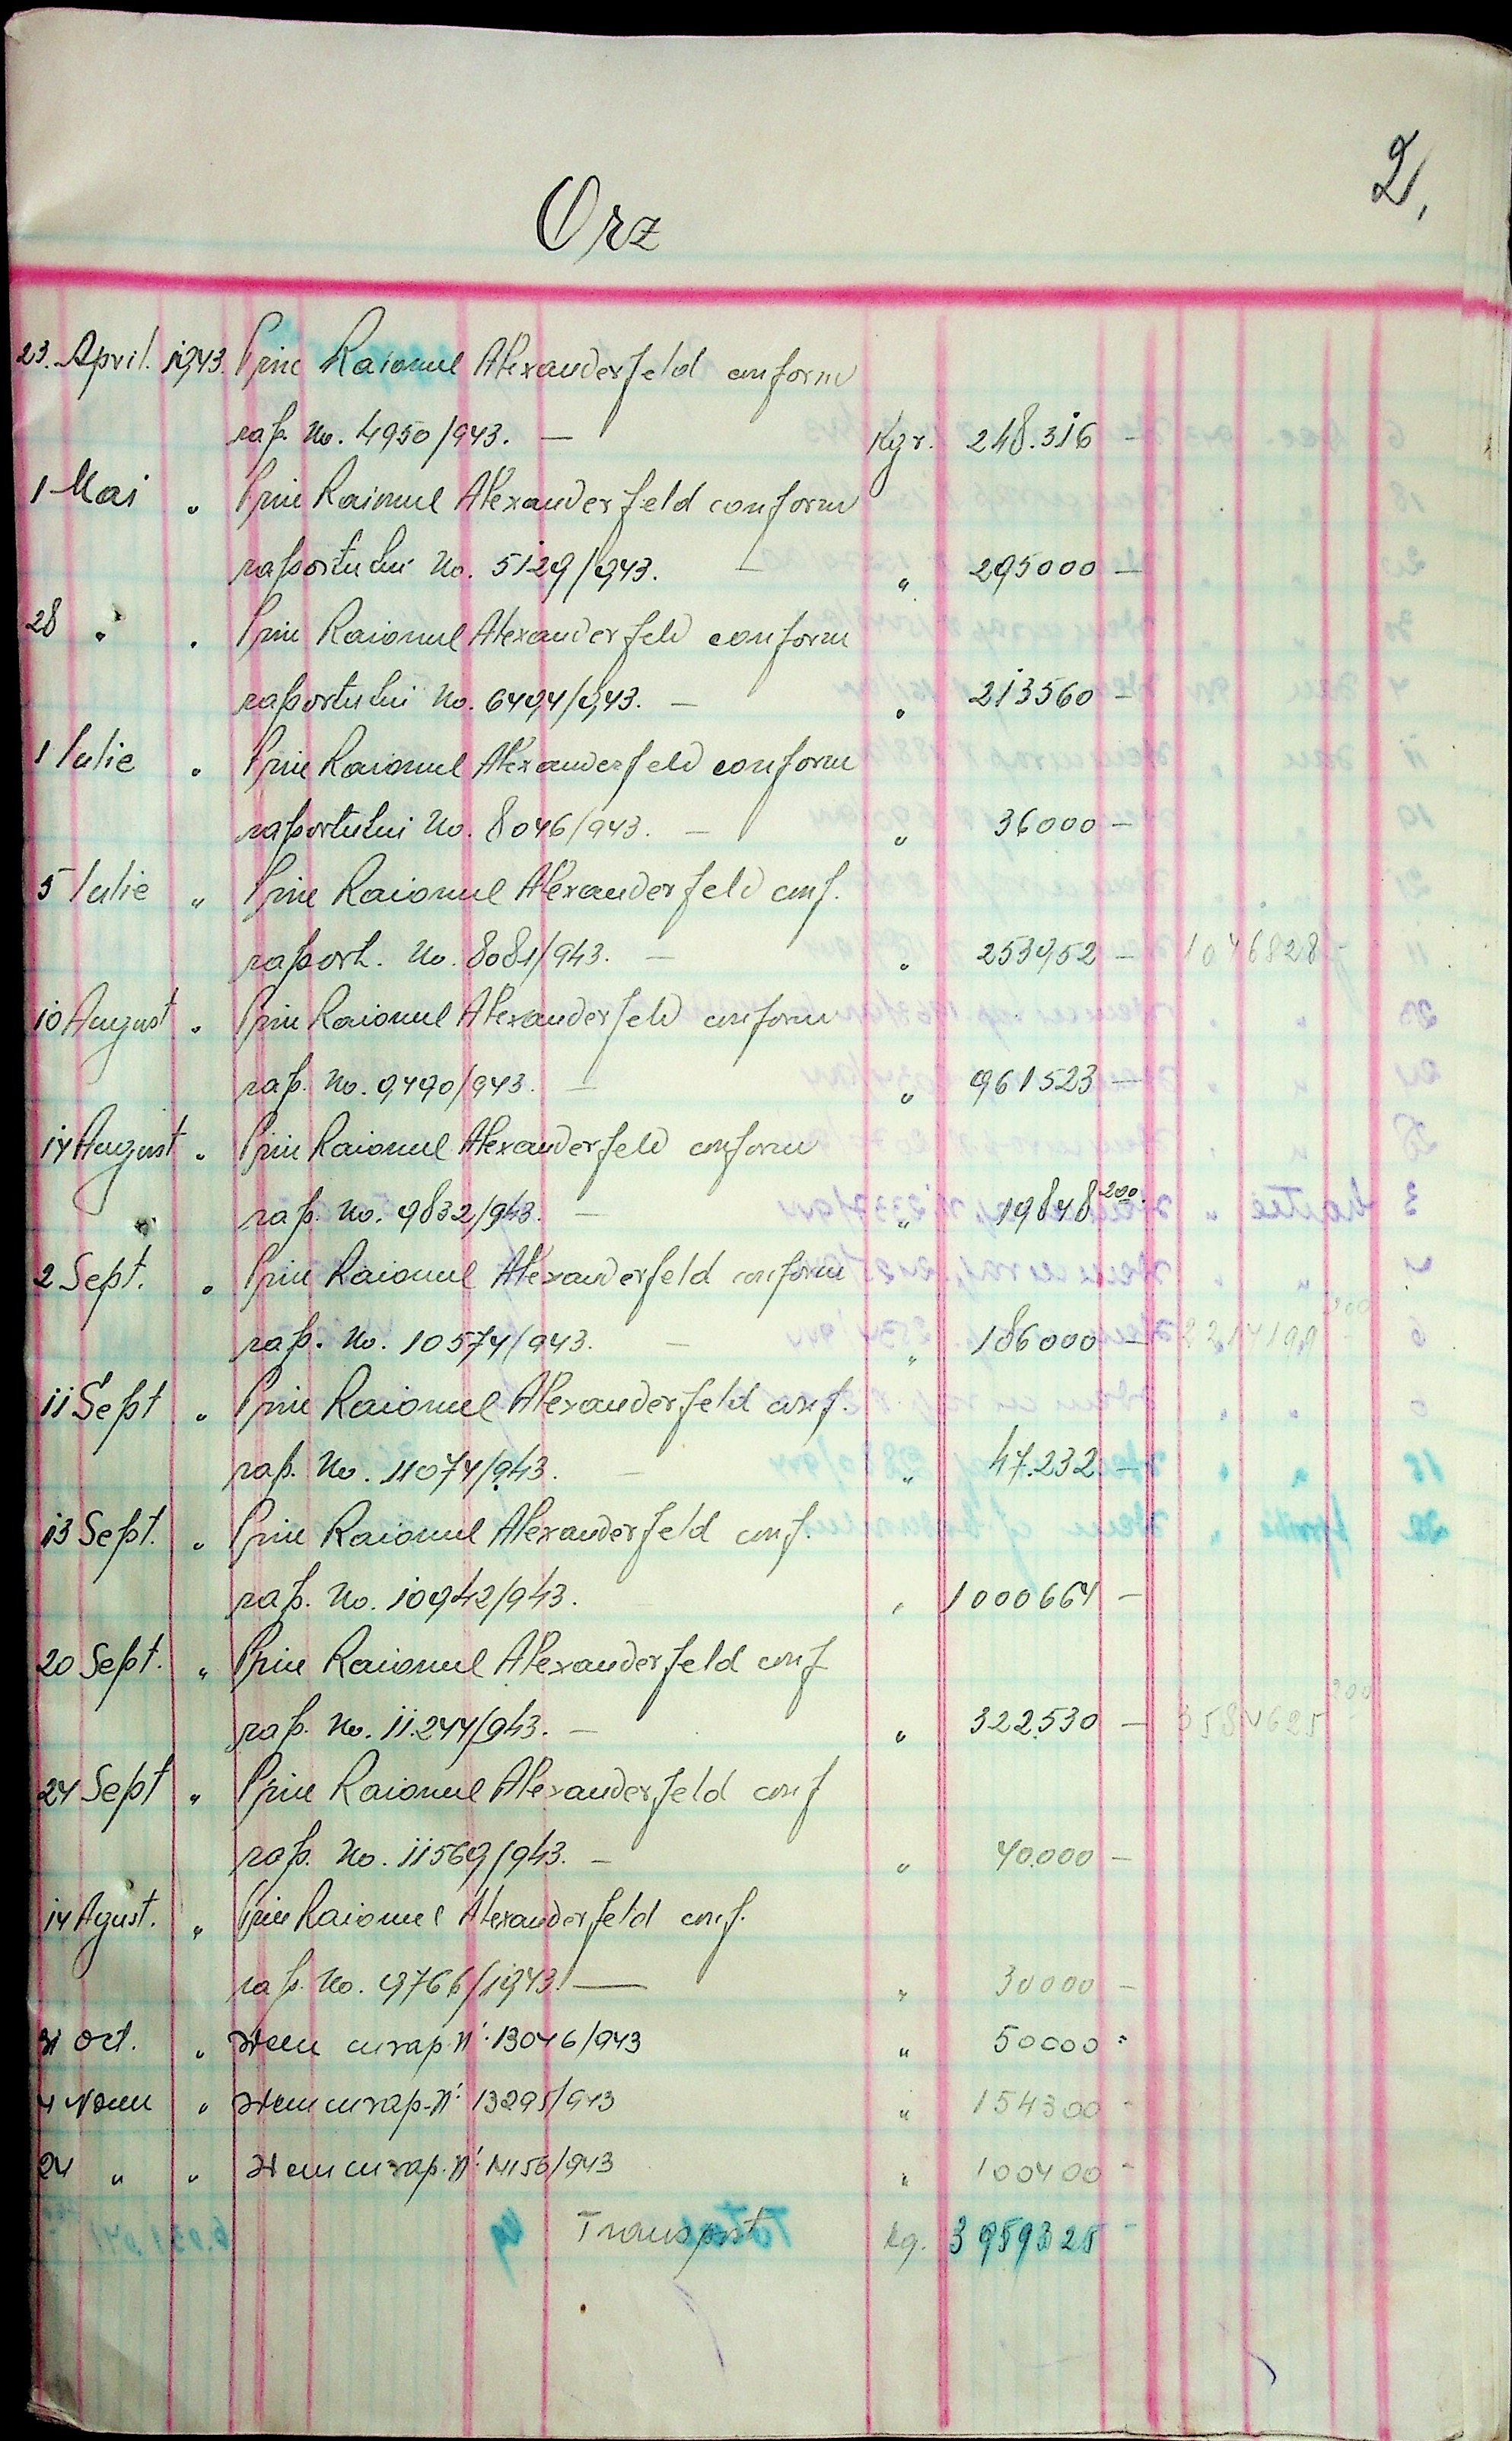 2,
Orz
23. April. 1943. Prin Raionul Alexanderfeld conform
rap. No. 4950/943. — Kgr. 248.316 —
1 Mai " Prin Raionul Alexanderfeld conform
raportului No. 5129/943. — " 295000 —
28 " " Prin Raionul Alexanderfeld conform
raportului No. 6494/943. — " 213560 —
1 Iulie " Prin Raionul Alexanderfeld conform
raportului No. 8046/943. — " 36000 —
5 Iulie " Prin Raionul Alexanderfeld conf.
raport. No. 8081/943. — " 253952 — 1046828
10 August " Prin Raionul Alexanderfeld conform
rap. No. 9490/943. — " 961523 —
14 August " Prin Raionul Alexanderfeld conform
rap. No. 9832/943. — " 19848 200.
2 Sept. " Prin Raionul Alexanderfeld conform
rap. No. 10574/943. — " 186000 — 2214199 200
11 Sept " Prin Raionul Alexanderfeld conf.
rap. No. 11074/943. — " 47.232 —
13 Sept. " Prin Raionul Alexanderfeld conf.
rap. No. 10942/943. " 1000664 —
20 Sept. " Prin Raionul Alexanderfeld conf
rap. No. 11.244/943. — " 322530 — 3584625 200
24 Sept " Prin Raionul Alexanderfeld conf
rap. No. 11569/943. — " 40.000 —
14 Agust. " Prin Raionul Alexanderfeld conf.
rap. No. 9766/1943. — " 30000 —
31 Oct. " Idem cu rap. N: 13046/943 " 50000 "
4 Noem " Idem cu rap. N: 13295/943 " 154300 -
24 " " Idem cu rap. N: 14156/943 " 100400 -
Transport kg. 3959325 -